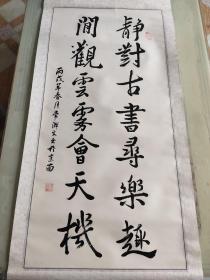 靜對古書尋樂趣
閒觀雲雾會天機
丙戌年春月